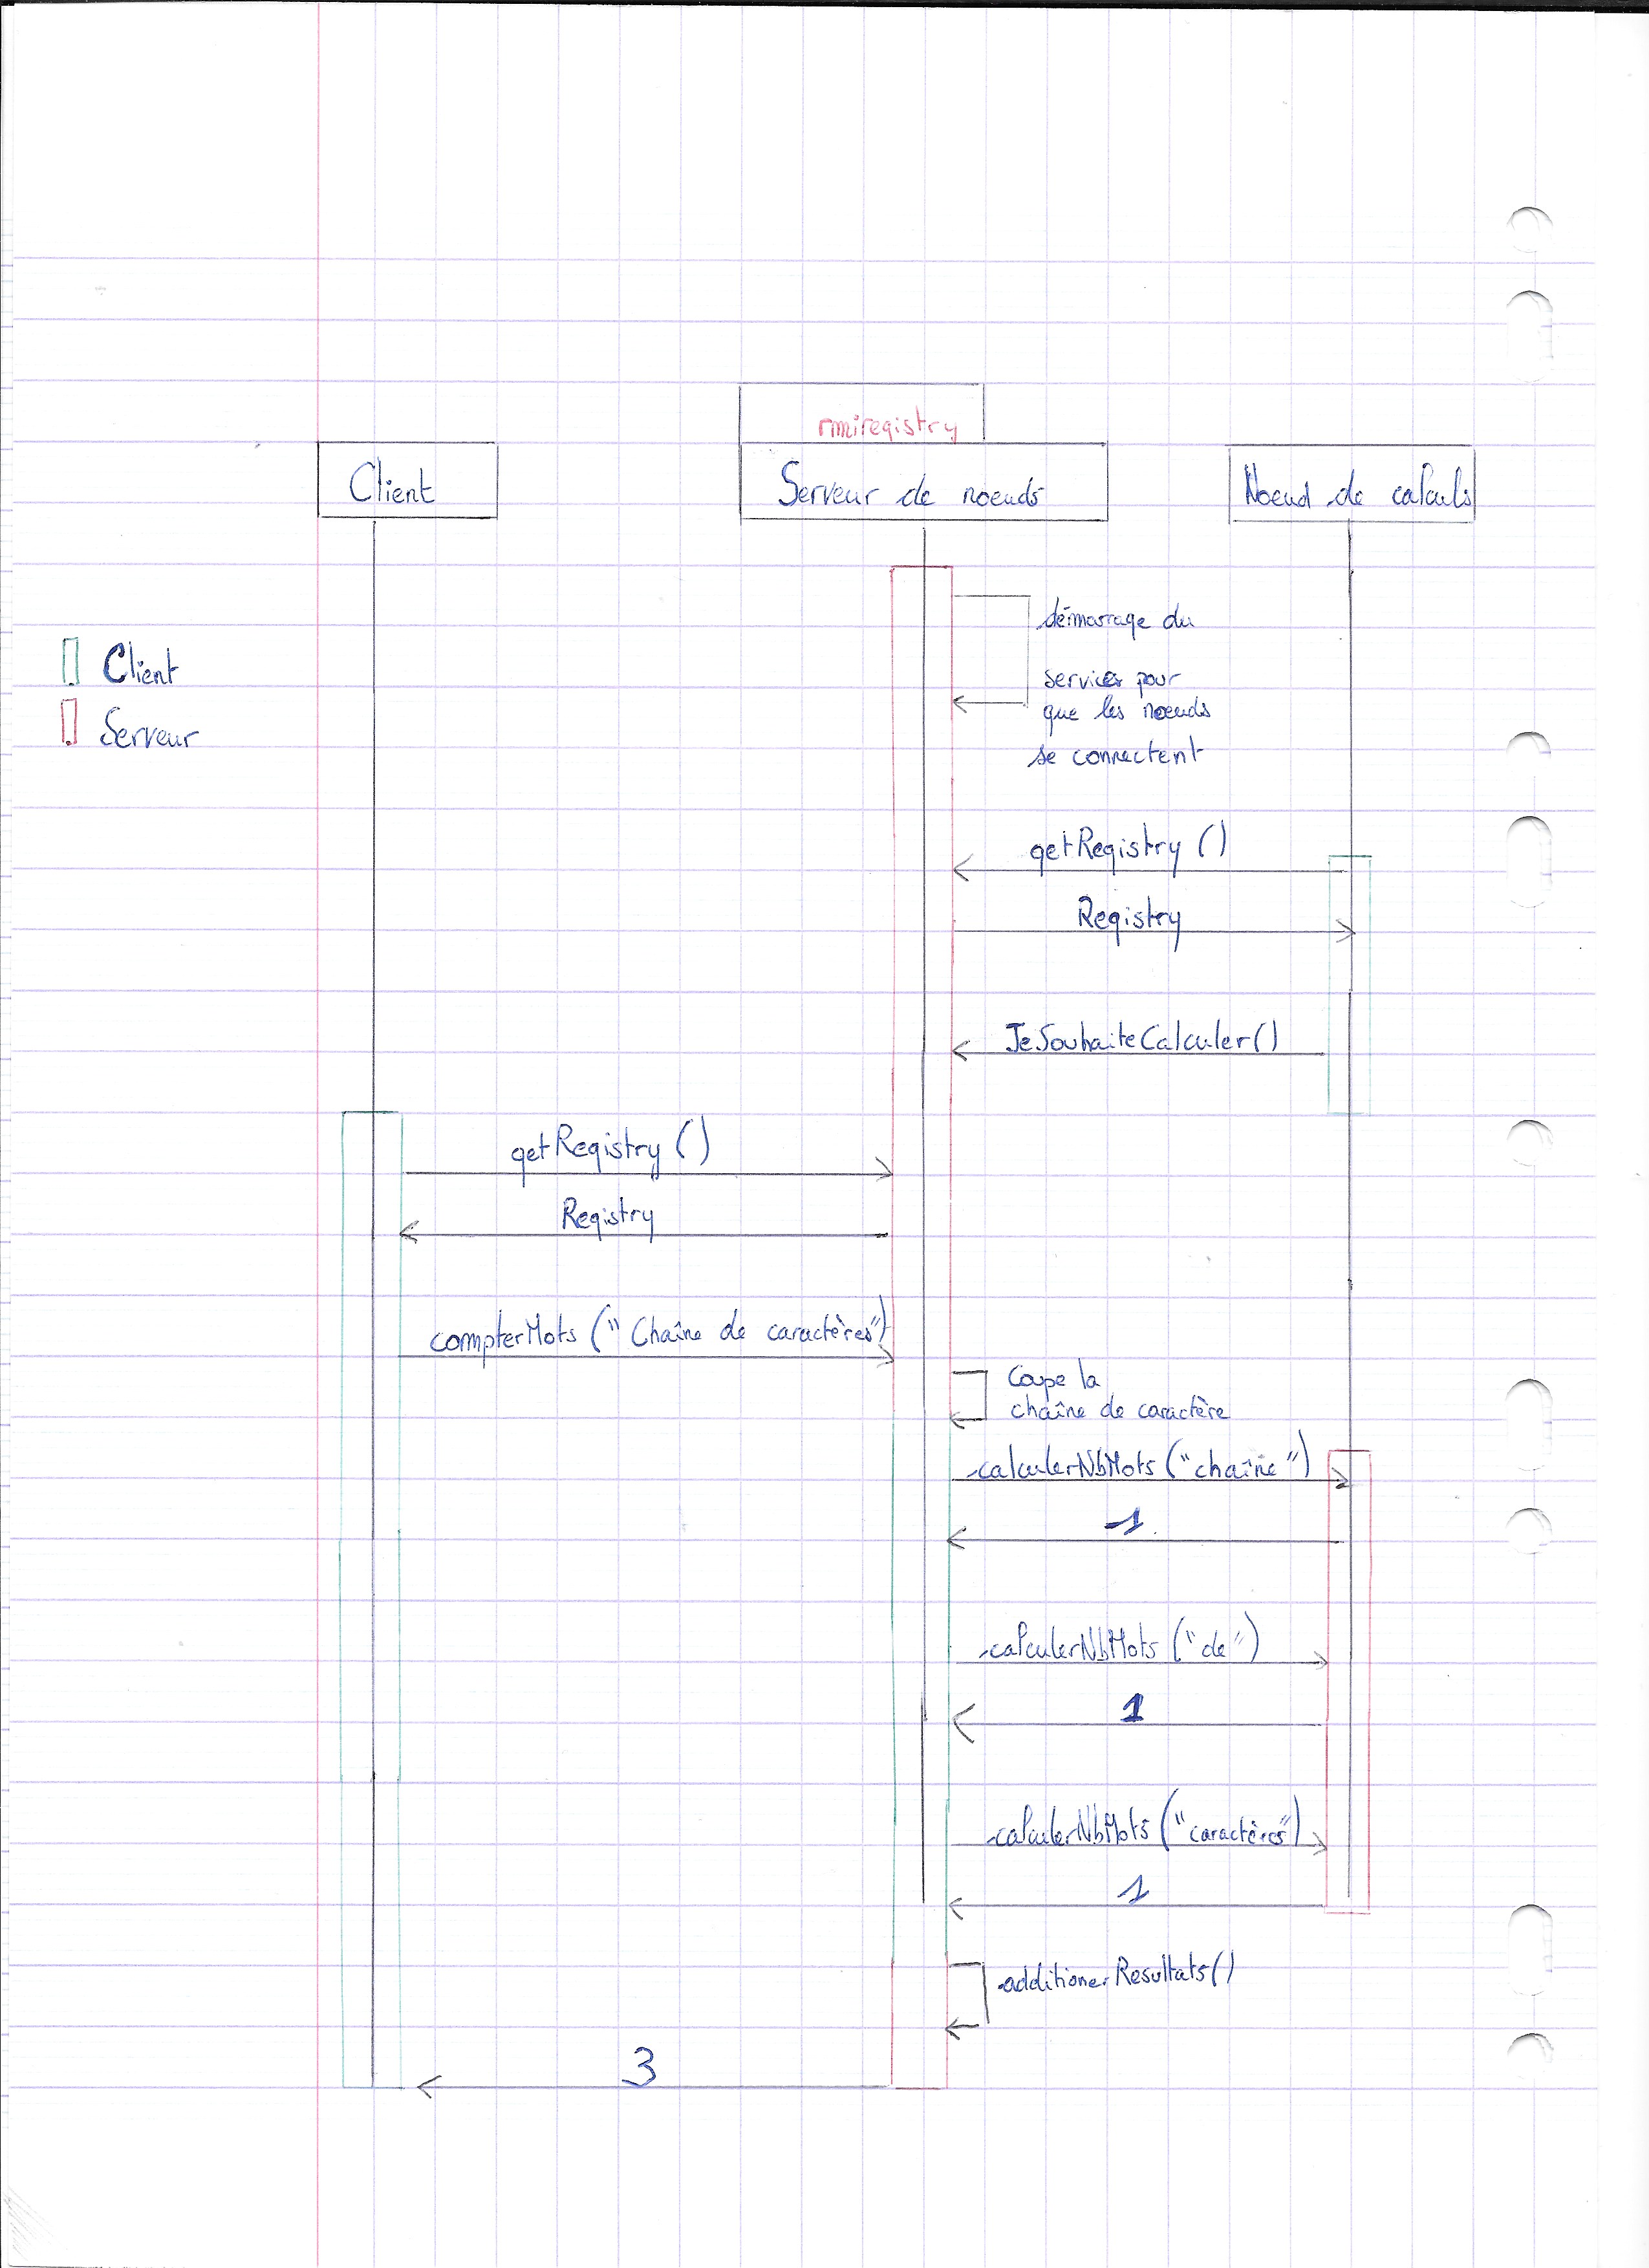 rmiregistry
Client
Serveur de noeuds
Noeud de calculs
démarrage du
services pour
que les noeuds
se connectent
Client
Serveur
getRegistry ()
Registry
JeSouhaiteCalculer()
getRegistry ()
Registry
compterMots ("Chaîne de caractères")
Coupe la
chaîne de caractère
calculerNbMots ("chaîne")
1
calculerNbMots ("de")
1
calculerNbMots ("caractères")
1
additionerResultats()
3